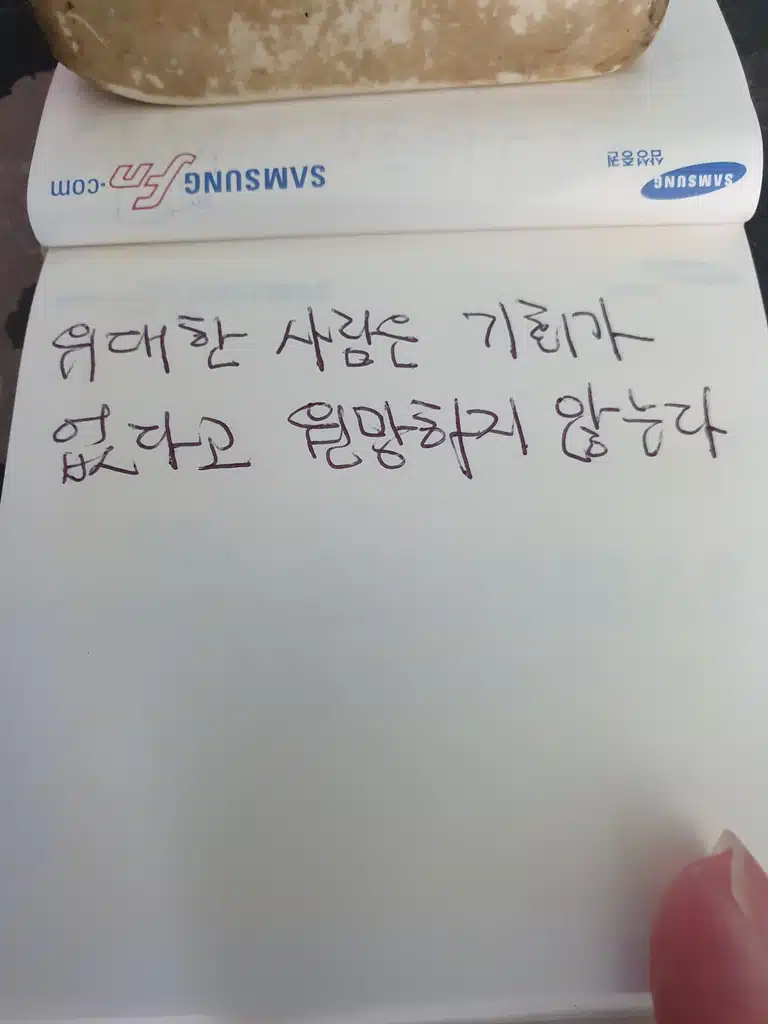 SAMSUNG 삼성증권
SAMSUNG fn.com
위대한 사람은 기회가
없다고 원망하지 않는다